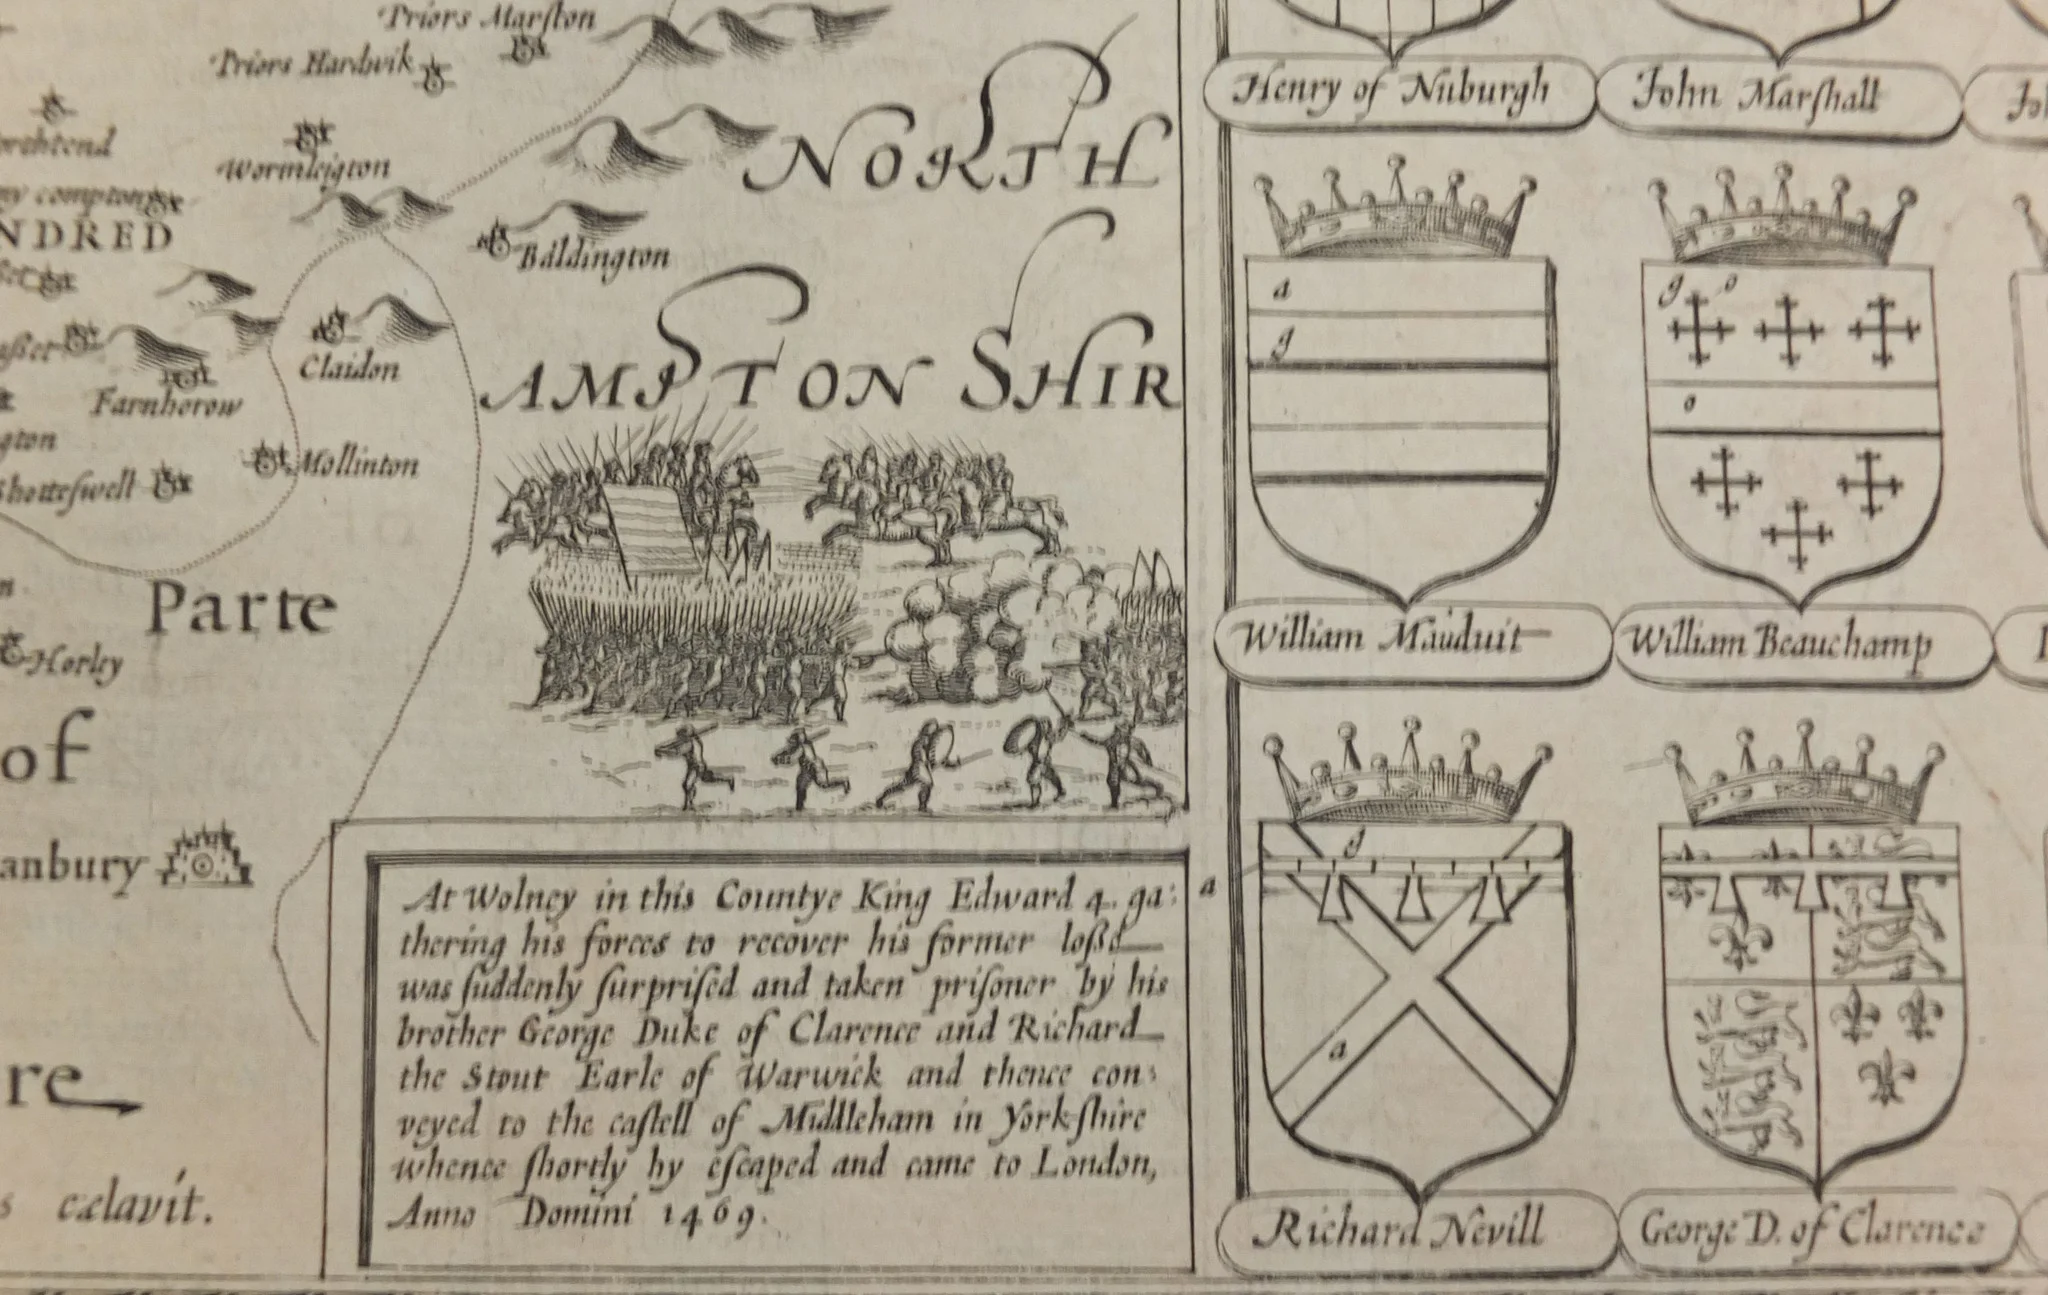 Priors Marſton
Priors Hardwik
Wormlejgton
NORTH
Baldington
NDRED
Claidon
Farnhorow
AMPTON SHIR
gton
Mollinton
Shotteſwell
Parte
Horley
of
anbury
re
s cælavit.
At Wolney in this Countye King Edward 4. ga:
thering his forces to recover his former loßd
was ſuddenly ſurpriſed and taken priſoner by his
brother George Duke of Clarence and Richard
the Stout Earle of Warwick and thence con:
veyed to the caſtell of Middleham in Yorkſhire
whence ſhortly hy eſcaped and came to London,
Anno Domini 1469.
Henry of Nuburgh
John Marſhall
Jo
a
g
g o
o
William Mauduit
William Beauchamp
g
a
a
Richard Nevill
George D. of Clarence